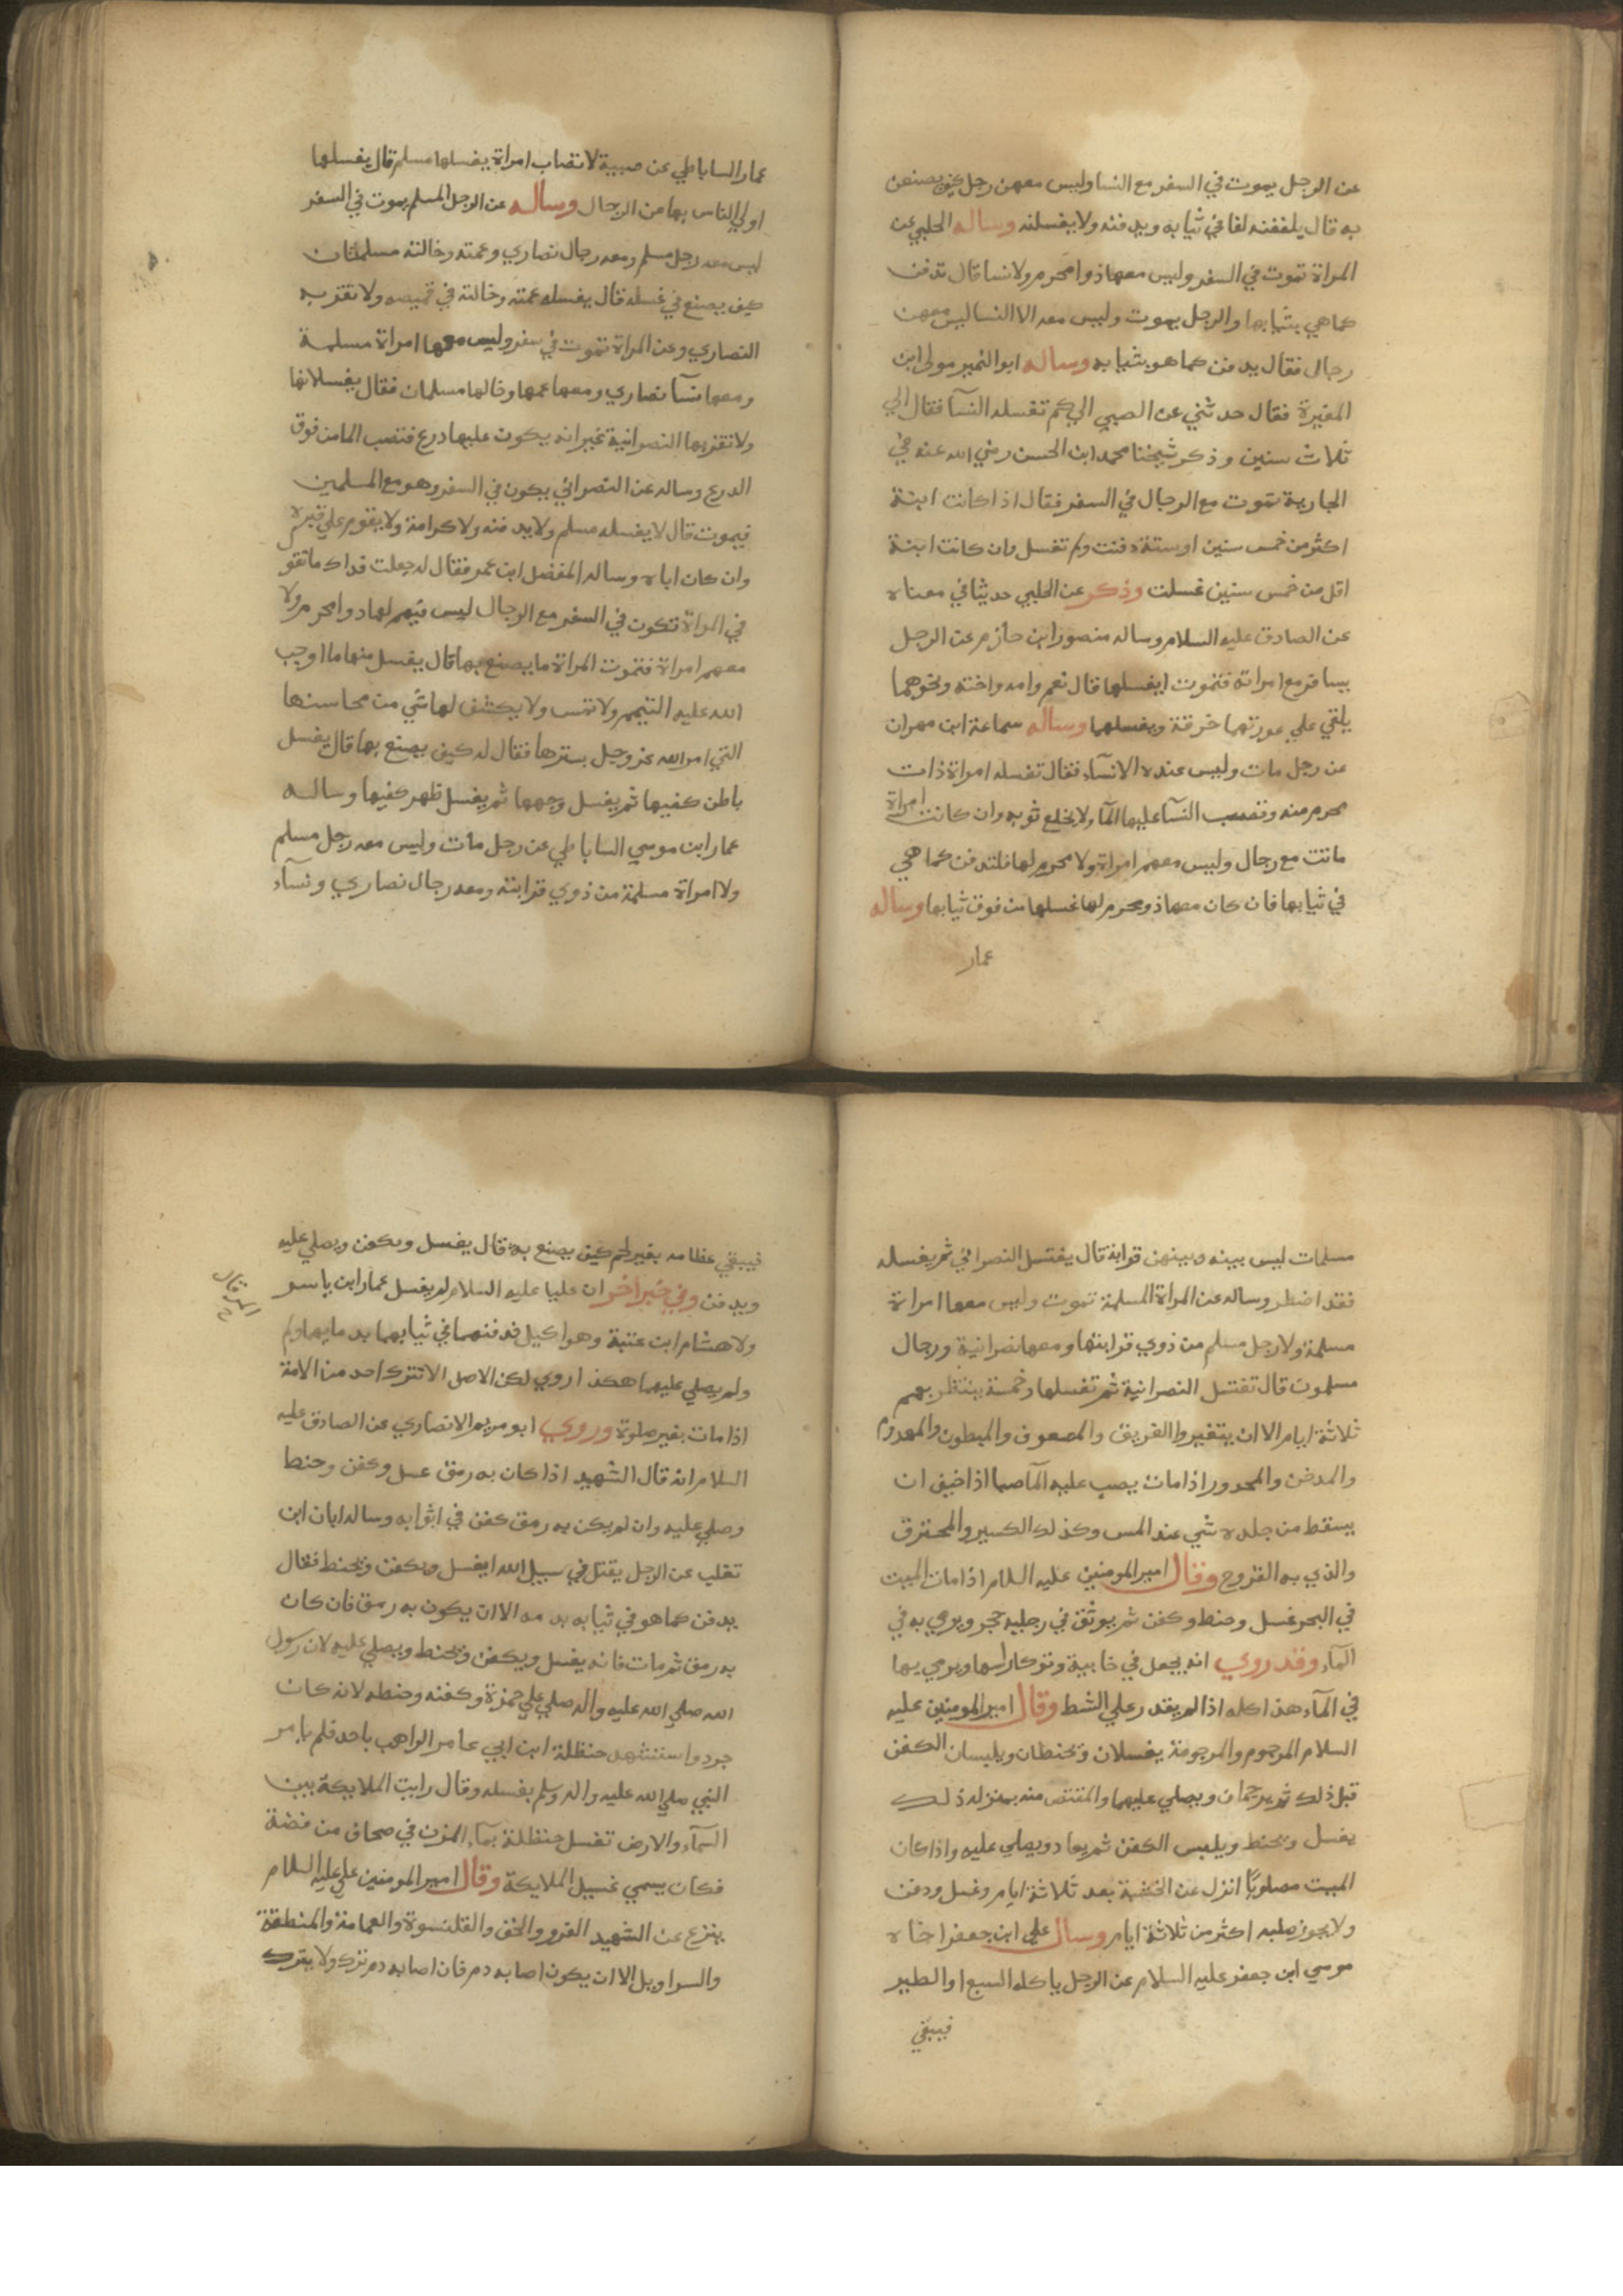 عن الرجل يموت في السفر مع النسا وليس معهن رجل كيف يصنعن
به قال يلففنه لفا في ثيابه ويدفنه ولا يغسلنه وساله الحلبي عن
المراة تموت في السفر وليس معها ذوا محرم ولا نسا قال تدفن
كما هي بثيابها والرجل يموت وليس معه الا النسا ليس معهن
رجال فقال يدفن كما هو بثيابه وساله ابوا النمير مولى ابن
المغيرة فقال حدثني عن الصبي الي كم تغسله النسآ فقال الي
ثلاث سنين وذكر شيخنا محمد ابن الحسن رضي الله عنه في
الجارية تموت مع الرجال في السفر فقال اذا كانت ابنة
اكثر من خمس سنين او ستة دفنت ولم تغسل وان كانت ابنة
اقل من خمس سنين غسلت وذكر عن الحلبي حديثا في معناه
عن الصادق عليه السلام وساله منصور ابن حازم عن الرجل
يسافر مع امراته فتموت ايغسلها قال نعم وامه واخته ونحوهما
يلقي علي عورتهما خرقة ويغسلهما وساله سماعة ابن مهران
عن رجل مات وليس عنده الا نسآء فقال تغسله امراة ذات
محرم منه وتصب النسآ عليها المآ ولا يخلع ثوبه وان كانت امراة
ماتت مع رجال وليس معهم امراة ولا محرم لها فلتدفن كما هي
في ثيابها فان كان معها ذو محرم لها غسلها من فوق ثيابها وساله
عمار
عمار الساباطي عن صبية لا تصاب امراة يغسلها مسلم قال يغسلها
اولي الناس بها من الرجال وساله عن الرجل المسلم يموت في السفر
ليس معه رجل مسلم ومعه رجال نصاري وعمته وخالته مسلمتان
كيف يصنع في غسله قال يغسله عمته وخالته في قميصه ولا تقربه
النصاري وعن المراة تموت في سفر وليس معها امراة مسلمة
ومعها نسآ نصاري ومعها عمها وخالها مسلمان فقال يغسلانها
ولا تقربها النصرانية غير انه يكون عليها درع فتصب الما من فوق
الدرع وساله عن النصراني يكون في السفر وهو مع المسلمين
فيموت قال لا يغسله مسلم ولا يدفنه ولا كرامة ولا يقوم علي قبره
وان كان اباه وساله المفضل ابن عمر فقال له جعلت فداك ما تقو
في المراة تكون في السفر مع الرجال ليس فيهم لها ذوا محرم ولا
معهم امراة فتموت المراة ما يصنع بها قال يغسل منها ما اوجب
الله عليه التيمم ولا تمس ولا يكشف لها شي من محاسنها
التي امر الله عز وجل بسترها فقال له كيف يصنع بها قال يغسل
باطن كفيها ثم يغسل وجهها ثم يغسل ظهر كفيها وساله
عمار ابن موسي الساباطي عن رجل مات وليس معه رجل مسلم
ولا امراة مسلمة من ذوي قرابته ومعه رجال نصاري ونسآء
مسلمات ليس بينه وبينهن قرابة قال يغتسل النصراني ثم يغسله
فقد اضطر وساله عن المراة المسلمة تموت وليس معها امراة
مسلمة ولا رجل مسلم من ذوي قرابتها ومعها نصرانية ورجال
مسلمون قال تغتسل النصرانية ثم تغسلها وخمسة ينتظر بهم
ثلاثة ايام الا ان يتغيروا الغريق والمصعوق والمبطون والمهدوم
والمدخن والمجدور اذا مات يصب عليه المآ صبا اذا خيف ان
يسقط من جلده شي عند المس وكذلك الكسير والمحترق
والذي به القروح وقال امير المومنين عليه السلام اذا مات الميت
في البحر غسل وحنط وكفن ثم يوثق في رجليه حجر ويرمي به في
المآء وقد روي انه يجعل في خابية وتوكا راسها ويرمي بها
في المآء هذا كله اذا لم يقدر علي الشط وقال امير المومنين عليه
السلام المرجوم والمرجومة يغسلان ويحنطان ويلبسان الكفن
قبل ذلك ثم يرجمان ويصلي عليهما والمقتص منه بمنزلة ذلك
يغسل ويحنط ويلبس الكفن ثم يعاد ويصلي عليه واذا كان
الميت مصلوبًا انزل عن الخشبة بعد ثلاثة ايام وغسل ودفن
ولا يجوز صلبه اكثر من ثلاثة ايام وسال علي ابن جعفر اخاه
موسي ابن جعفر عليه السلام عن الرجل ياكله السبع او الطير
فيبقي
فيبقي عظامه بغير لحم كيف يصنع به قال يغسل ويكفن ويصلي عليه
ويدفن وفي خبر اخر ان عليا عليه السلام لم يغسل عمار ابن ياسر
ولا هشام ابن عتبة وهو اكيل فدفنهما في ثيابهما بدمايهما ولم
ولم يصلي عليهما هكذا روي لكن الاصل الا تترك احد من الامة
اذا مات بغير صلوة وروي ابو مريم الانصاري عن الصادق عليه
السلام انه قال الشهيد اذا كان به رمق غسل وكفن وحنط
وصلي عليه وان لم يكن به رمق كفن في اثوابه وساله ابان ابن
تغلب عن الرجل يقتل في سبيل الله ايغسل ويكفن ويحنط فقال
يدفن كما هو في ثيابه بدمه الا ان يكون به رمق فان كان
به رمق ثم مات فانه يغسل ويكفن ويحنط ويصلي عليه لان رسول
الله صلي الله عليه واله صلي علي حمزة وكفنه وحنطه لانه كان
جرد واستشهد حنظلة ابن ابي عامر الراهب باحد فلم يامر
النبي صلي الله عليه واله وسلم بغسله وقال رايت الملايكة بين
السمآء والارض تغسل حنظلة بمآء المزن في صحاف من فضة
فكان يسمي غسيل الملايكة وقال امير المومنين علي عليه السلام
ينزع عن الشهيد الفرو والخف والقلنسوة والعمامة والمنطقة
والسراويل الا ان يكون اصابه دم فان اصابه دم ترك ولا يترك
المرقال